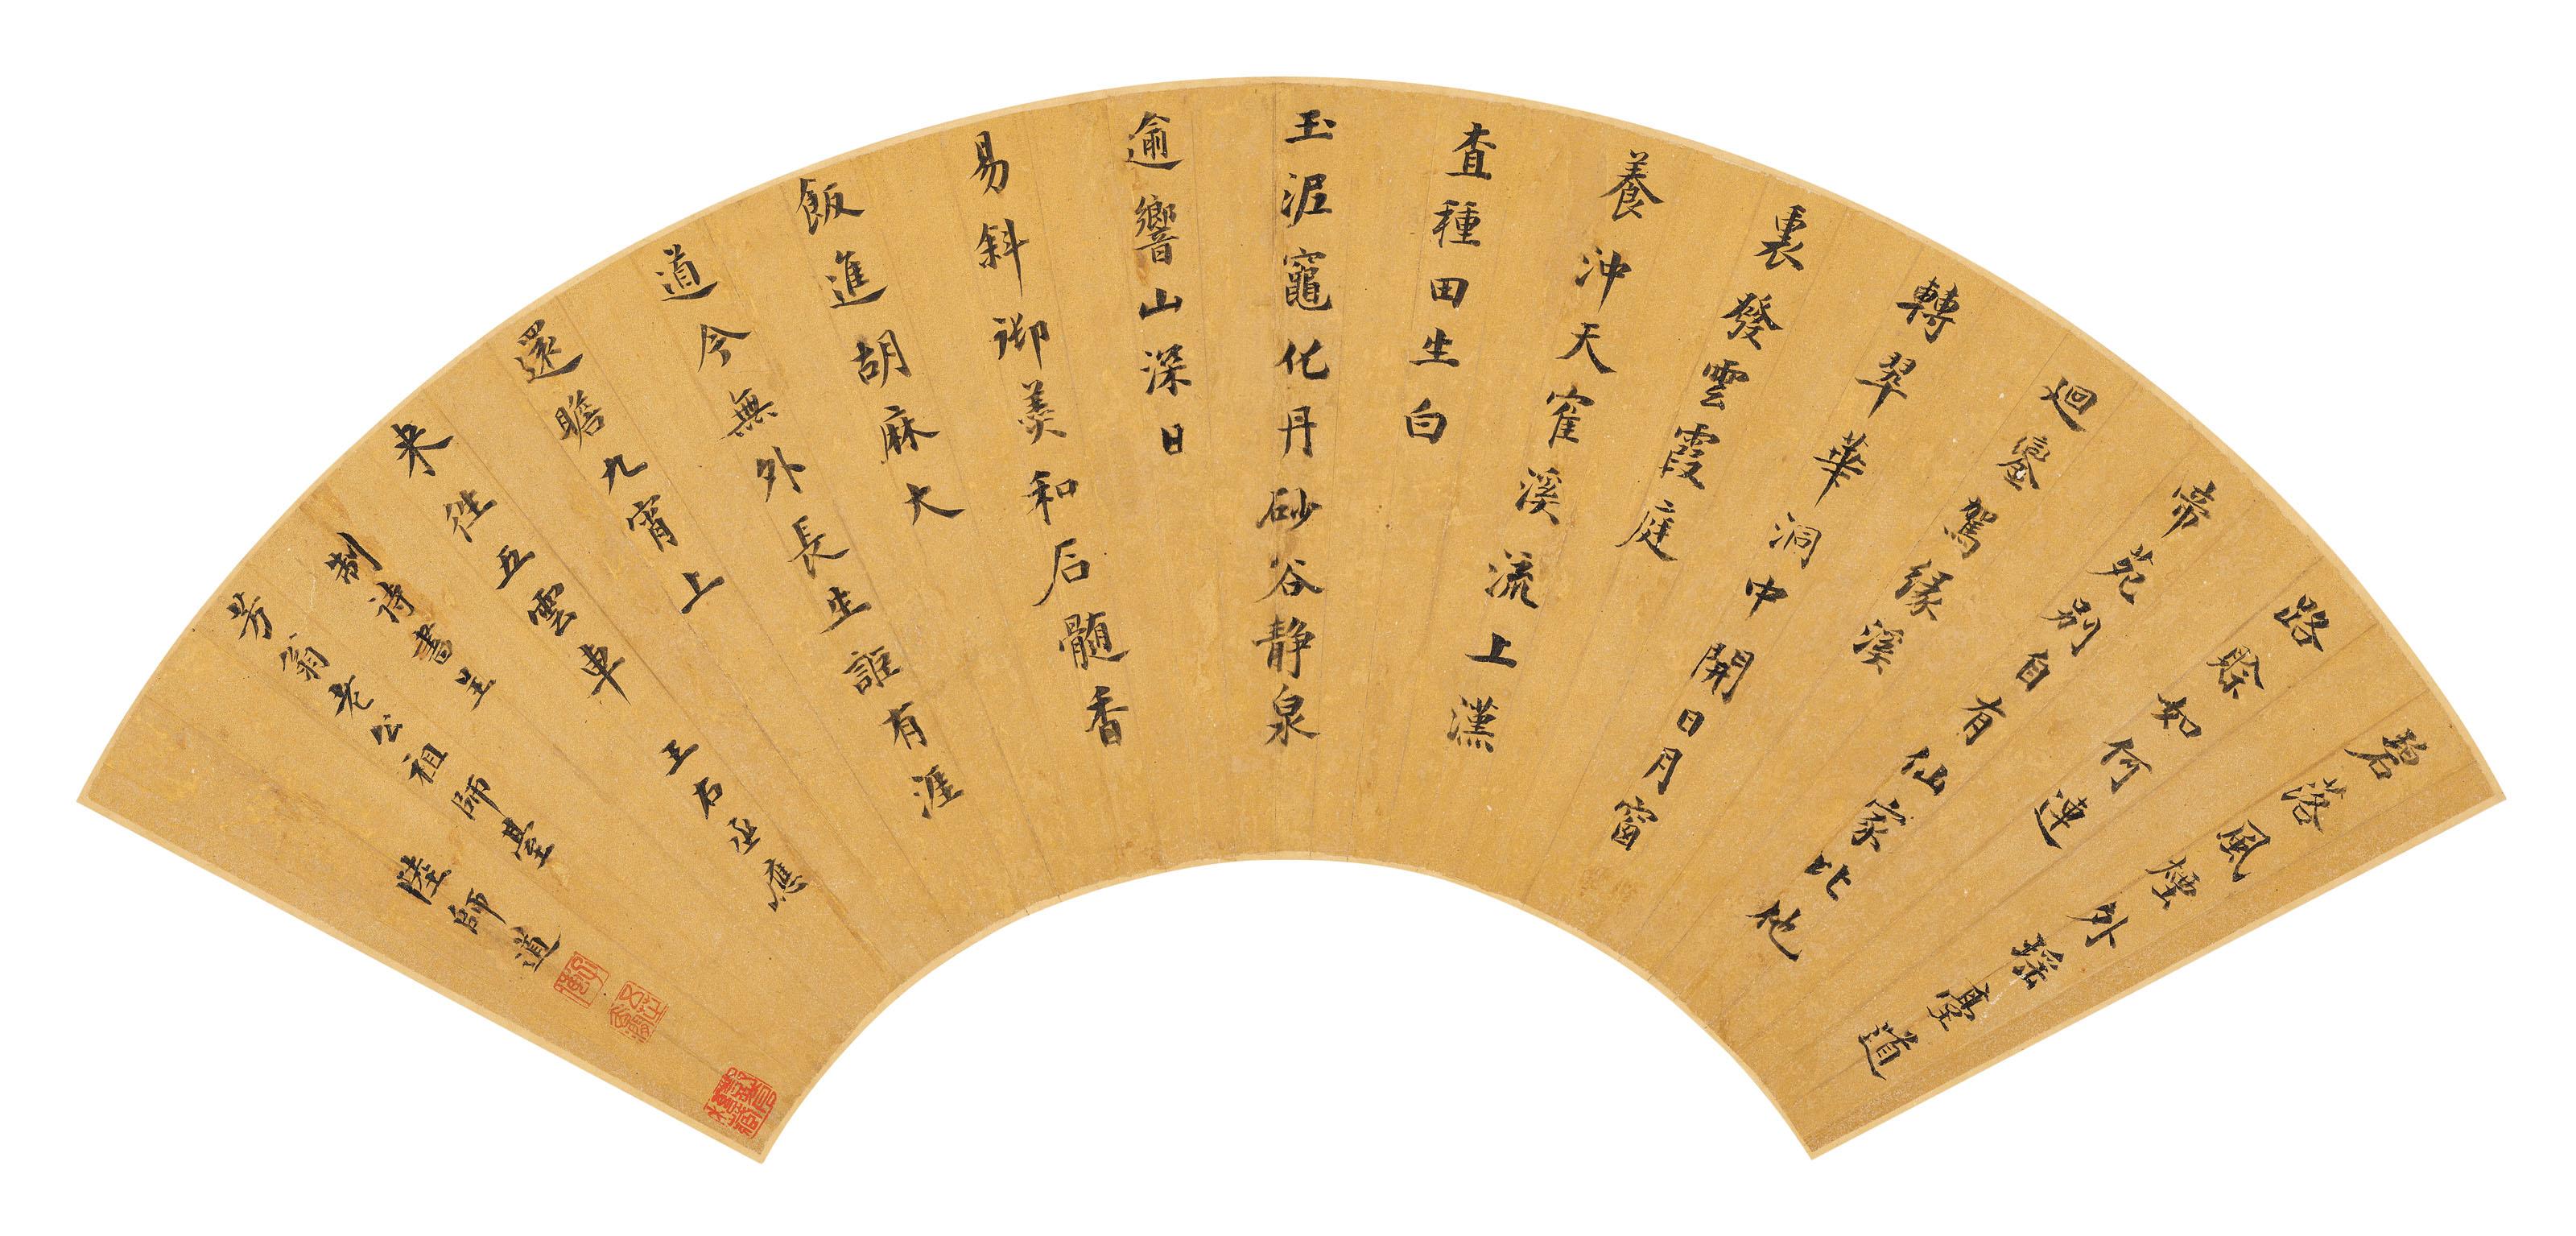 碧落風煙外瑤臺道
路賒如何連
帝苑別自有仙家比他
迴鑾駕緣溪
轉翠華洞中開日月窗
裏發雲霞庭
養沖天隺溪流上漢
查種田生白
玉泥竈化丹砂谷静泉
逾響山深日
易斜御羹和石髓香
飯進胡麻大
道今無外長生詎有涯
還瞻九宵上
来往五雲車 王右丞應
制詩書呈
芳翁老公祖師臺
陸師道